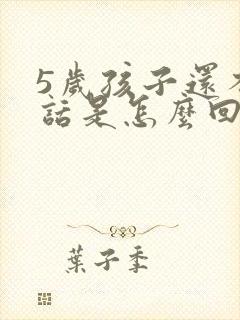 5歲孩子還不
話是怎麼回
葉子季